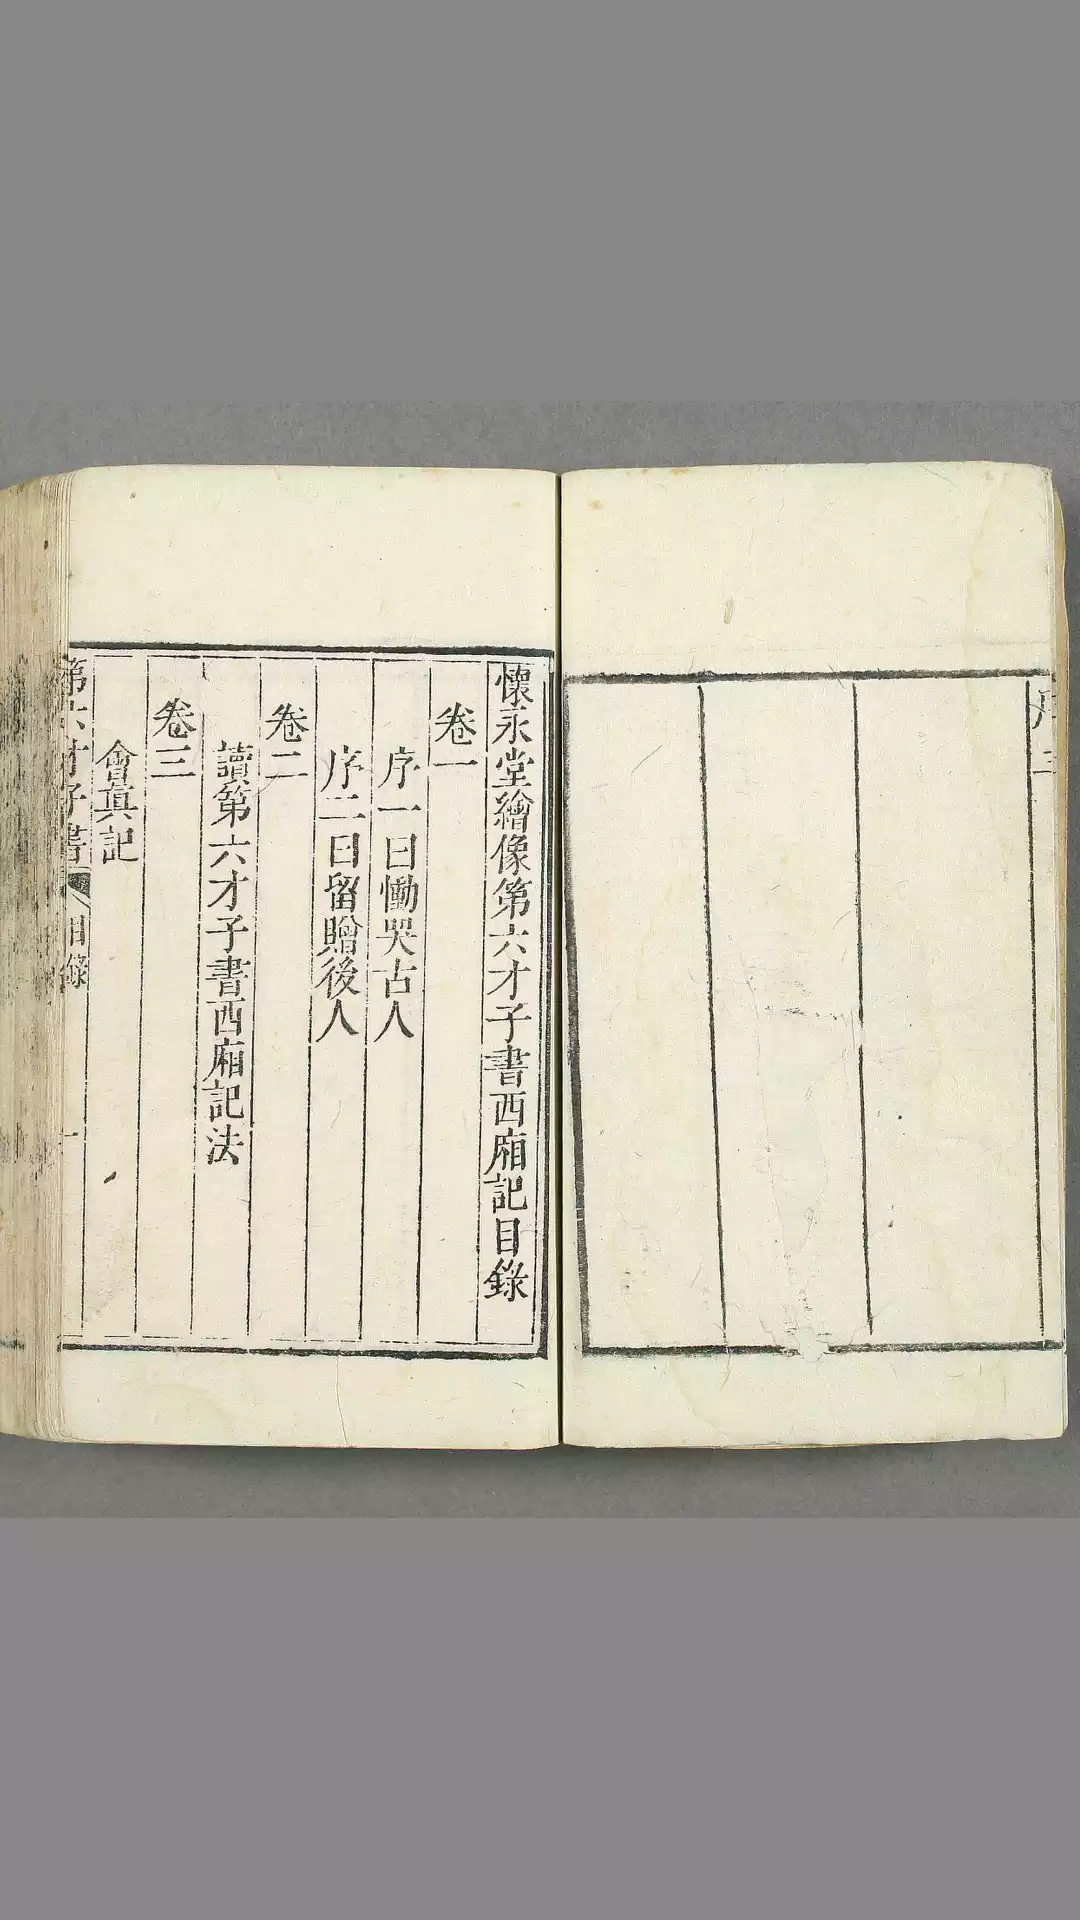 懷永堂繪像第六才子書西廂記目錄
卷一
序一曰慟哭古人
序二曰留贈後人
卷二
讀第六才子書西廂記法
卷三
會真記
第六才子書 目錄 一